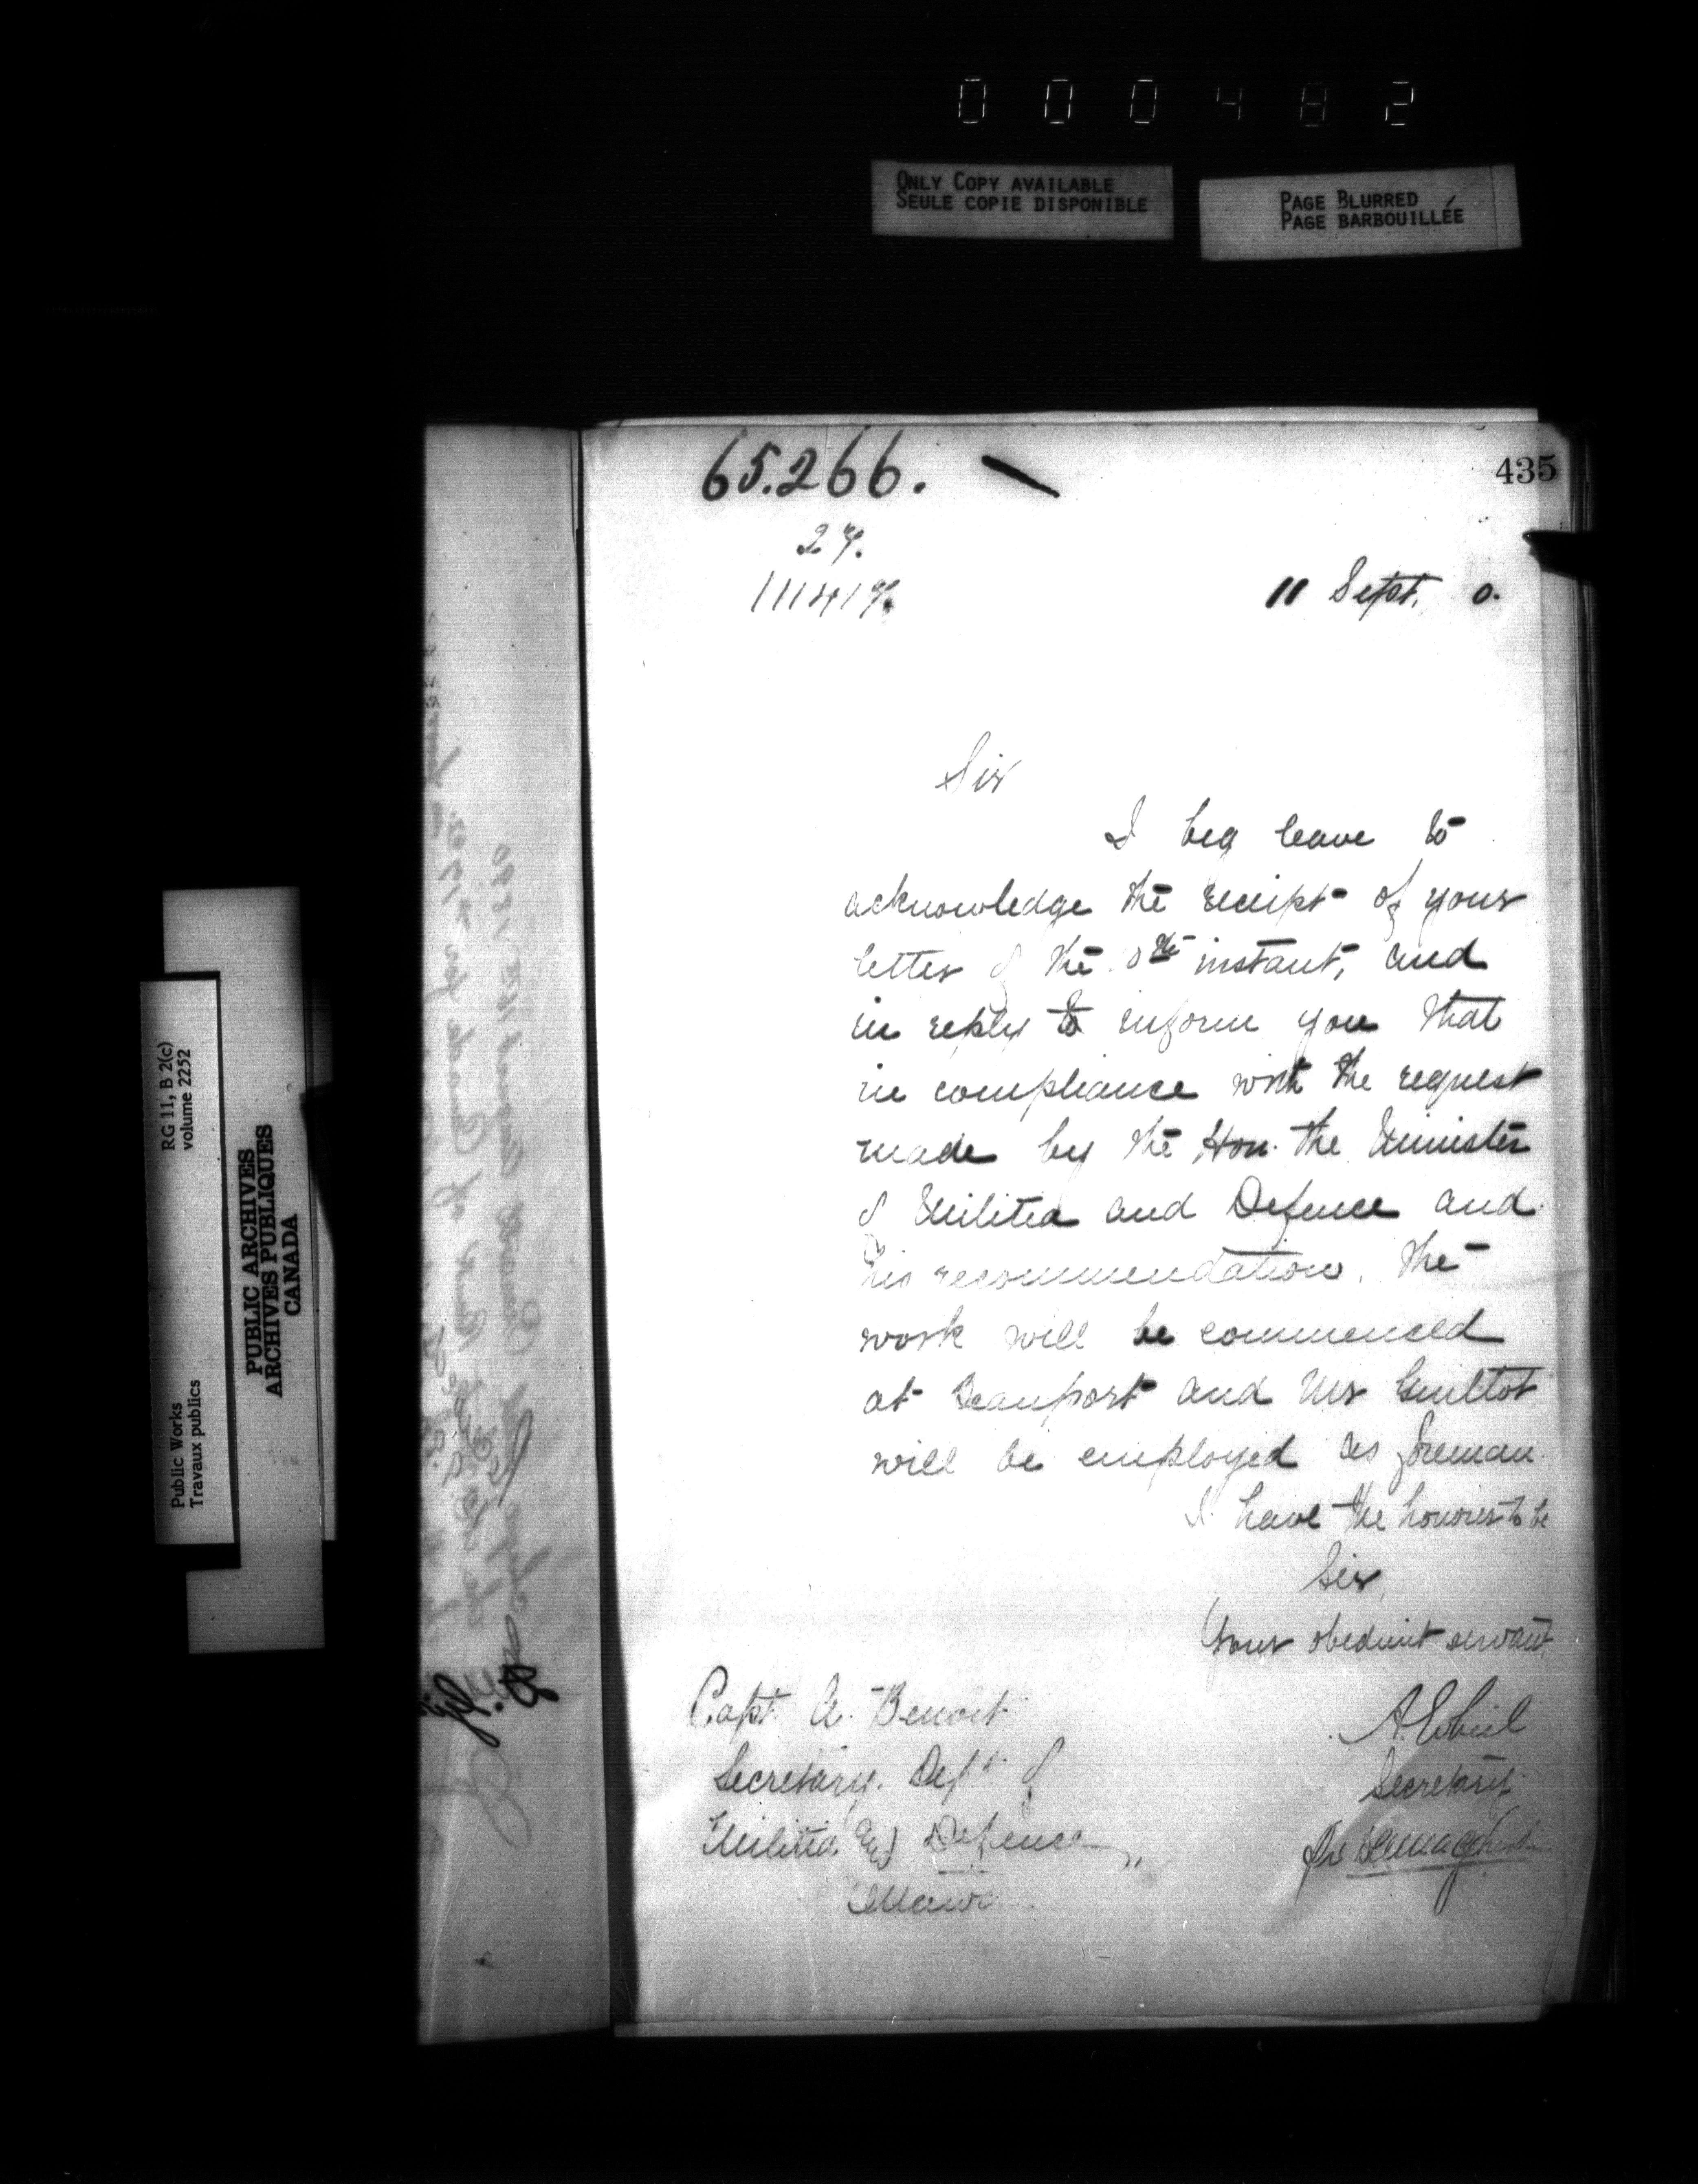 000482
ONLY COPY AVAILABLE
SEULE COPIE DISPONIBLE
PAGE BLURRED
PAGE BARBOUILLÉE
435
65.266.
11 Sept. 0.
Sir
I beg leave to
acknowledge the receipt of your
letter of the instant, and
in reply to inform you that
in compliance with the request
made by the Hon. the Minister
of Militia and Defence and
his recommendation, the
work will be commenced
at Beauport and Mr
will be employed as foreman.
I have the honour to be
Sir,
Your obedient servant,
Capt. A. Benoit
Secretary. Dept. of
Militia and Defence,
Ottawa
Secretary.
Public Works
Travaux publics
RG 11, B 2(c)
volume 2252
PUBLIC ARCHIVES
ARCHIVES PUBLIQUES
CANADA